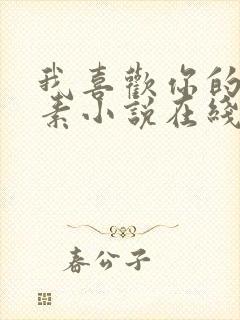 我喜歡你的
素小說在綫
春公子